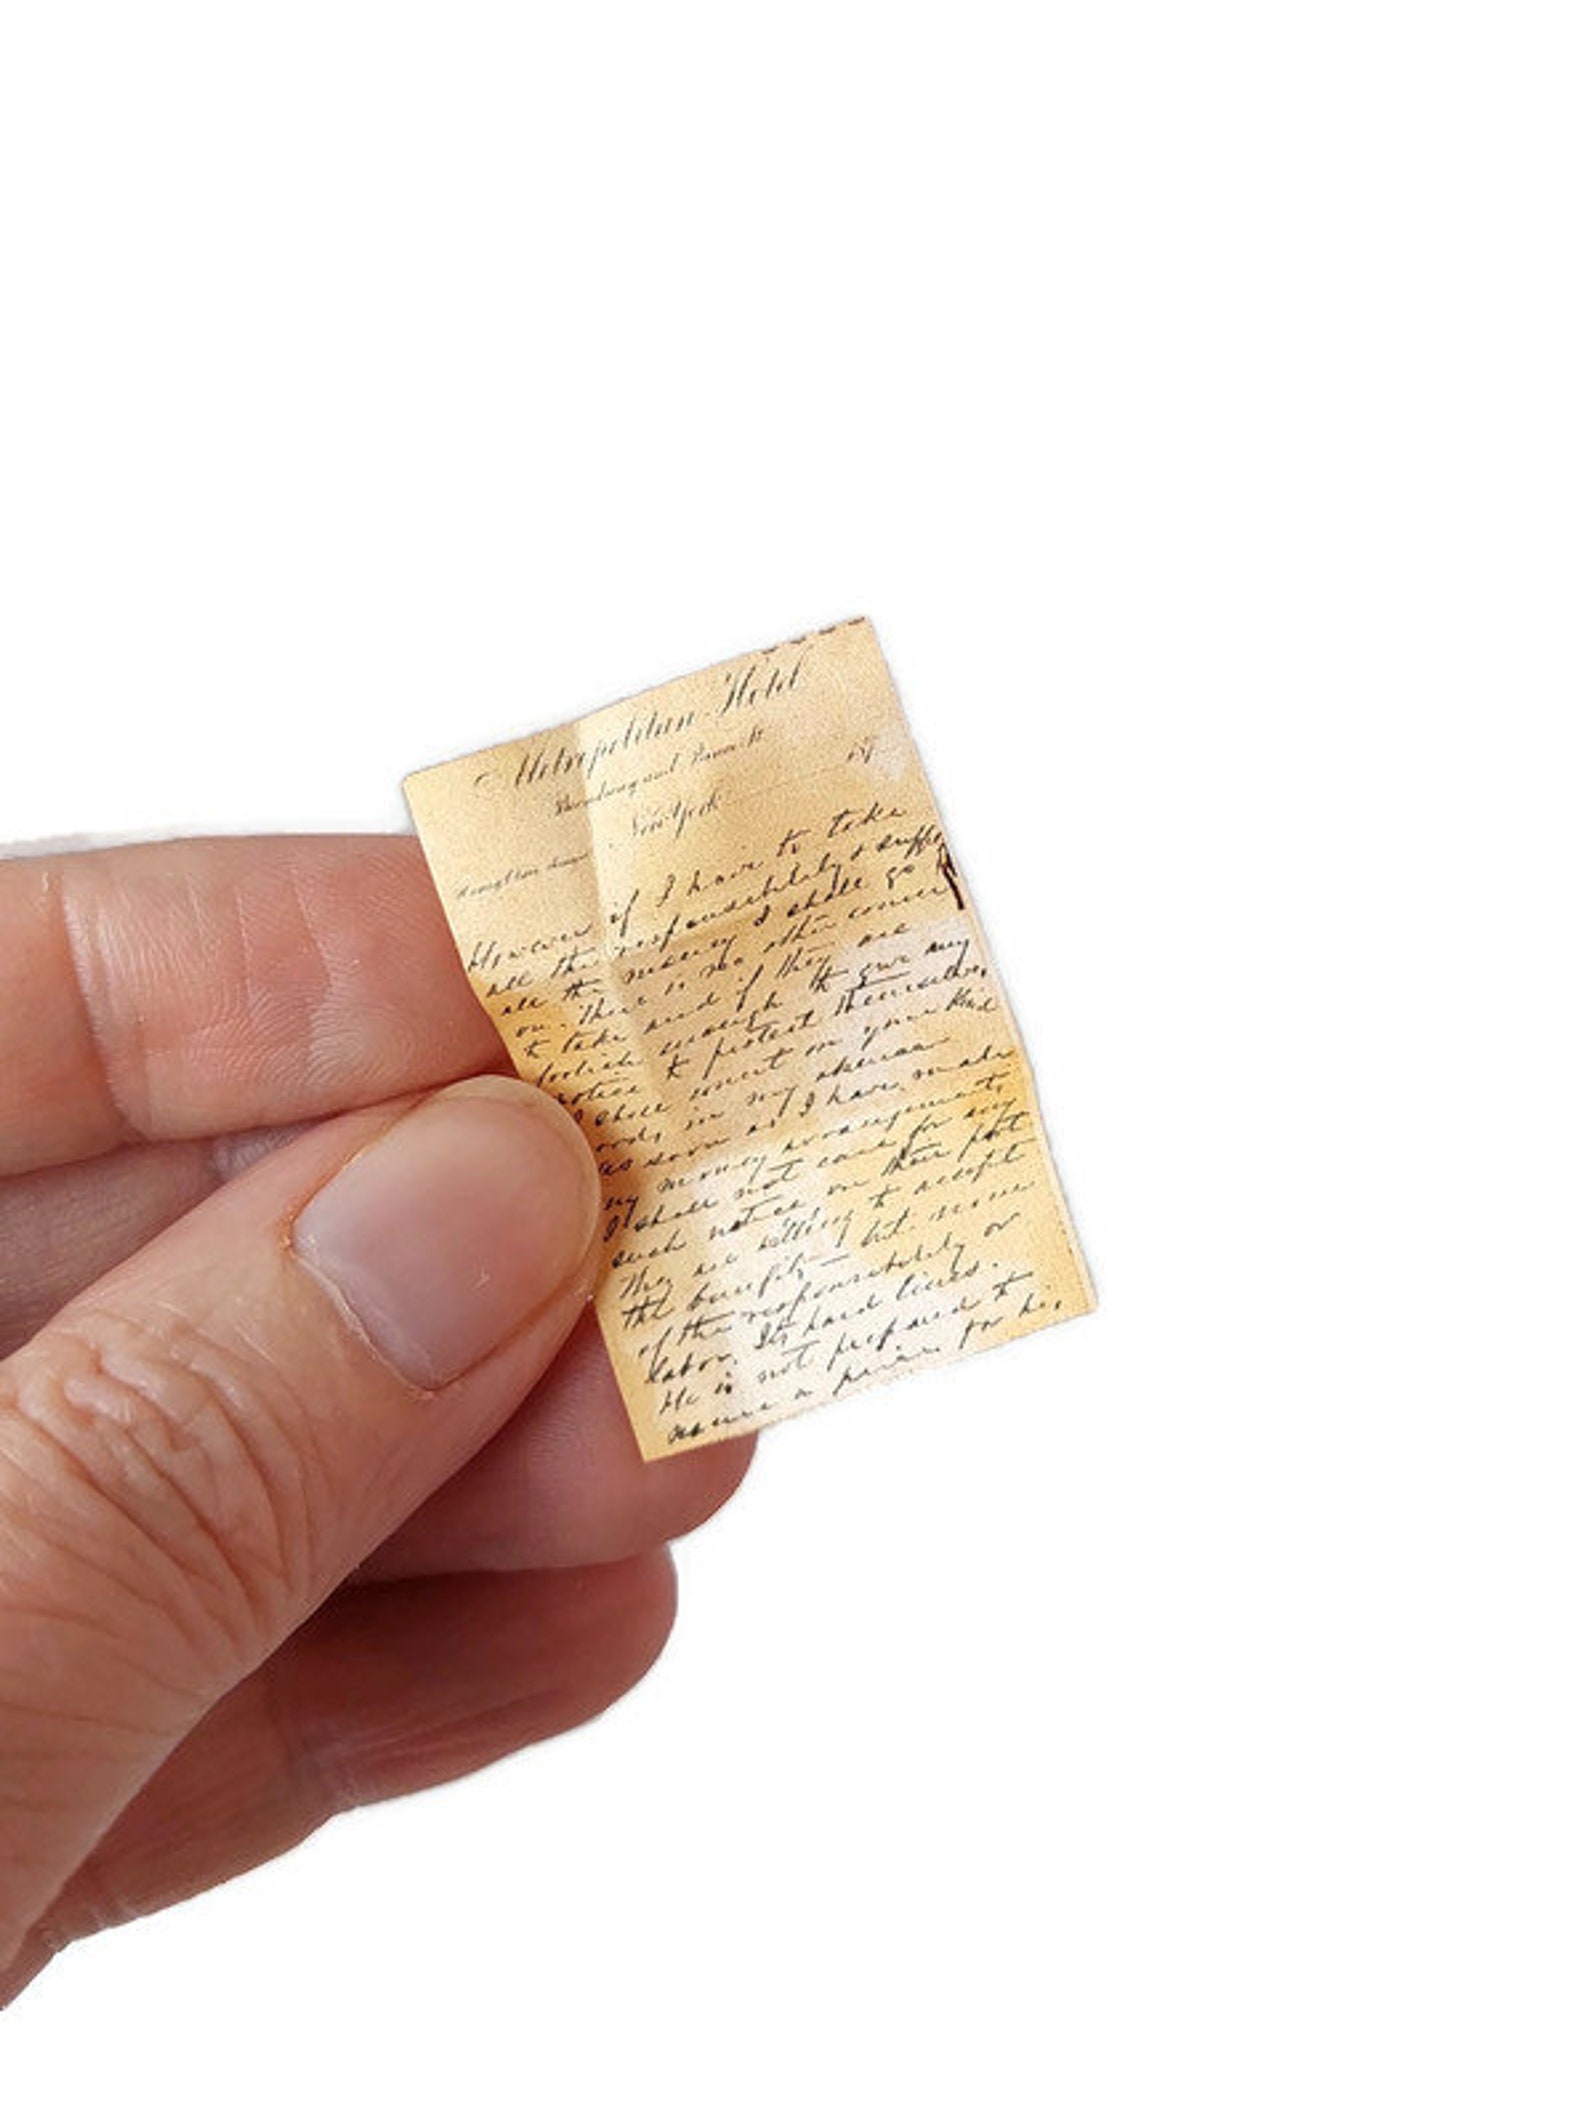 Metropolitan Hotel
Broadway and Prince St.
New York 187
However if I have to take
all the responsibility & supply
all the money I shall go
on. There is no other concern
to take and if they are
foolish enough to give any
notice to protect themselves,
I shall count on your kind
words, in my absence
as soon as I have made
my money arrangements
I shall not care for any
such notice on their part
They are willing to accept
the benefits — but none
of the responsibility or
labor. Its hard lines.
He is not prepared to
for he,